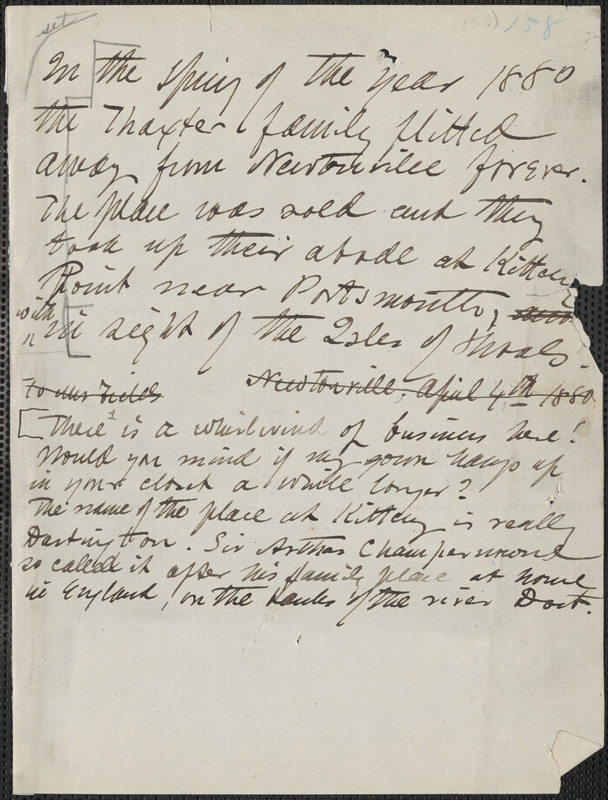 set
158
In the spring of the year 1880
the Thaxter family flitted
away from Newtonville forever.
The place was sold and they
took up their abode at Kittery
Point near Portsmouth,
with
n
in sight of the Isles of Shoals.
To Mrs Fields Newtonville, April 4th 1880
There's is a whirlwind of business here!
Would you mind if my gown hangs up
in your closet a while longer?
The name of the place at Kittery is really
Dartington. Sir Arthur Champernowne
so called it after his family place at home
in England, on the banks of the river Dart.